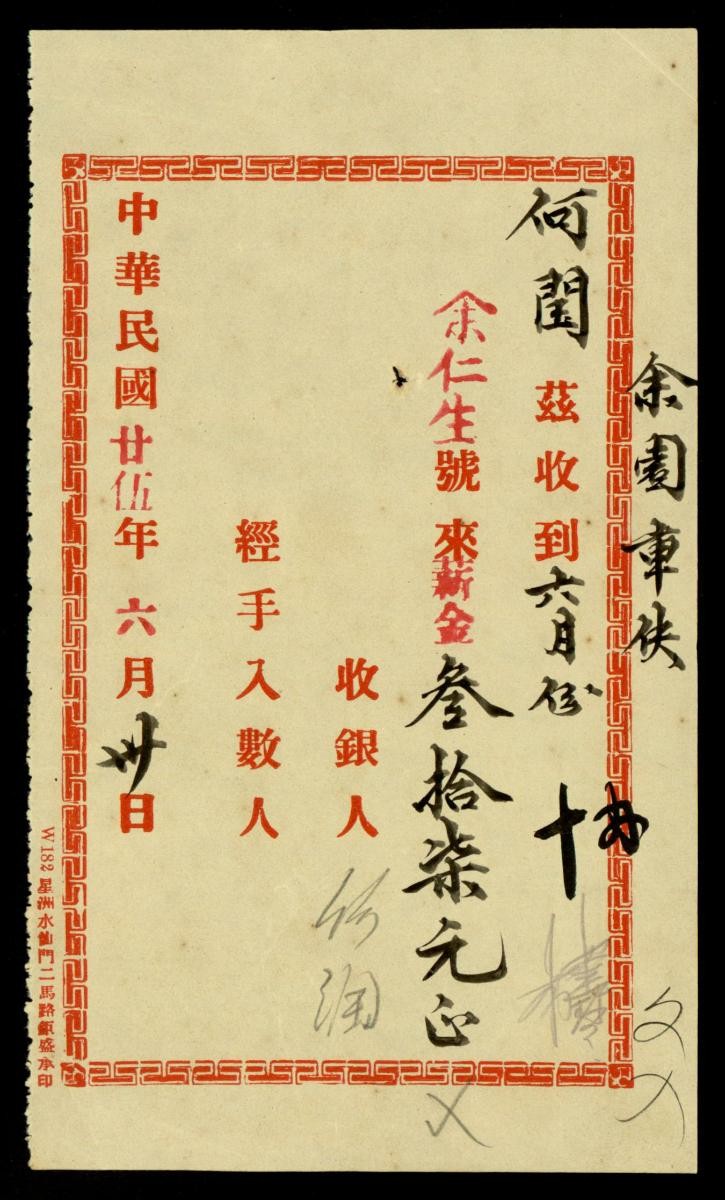 余園車伕
何閏 茲收到六月份
余仁生號來薪金叁拾柒元正
收銀人
經手入數人
中華民國廿伍年六月卅日
W 182 星洲水仙門二馬路銀盛承印